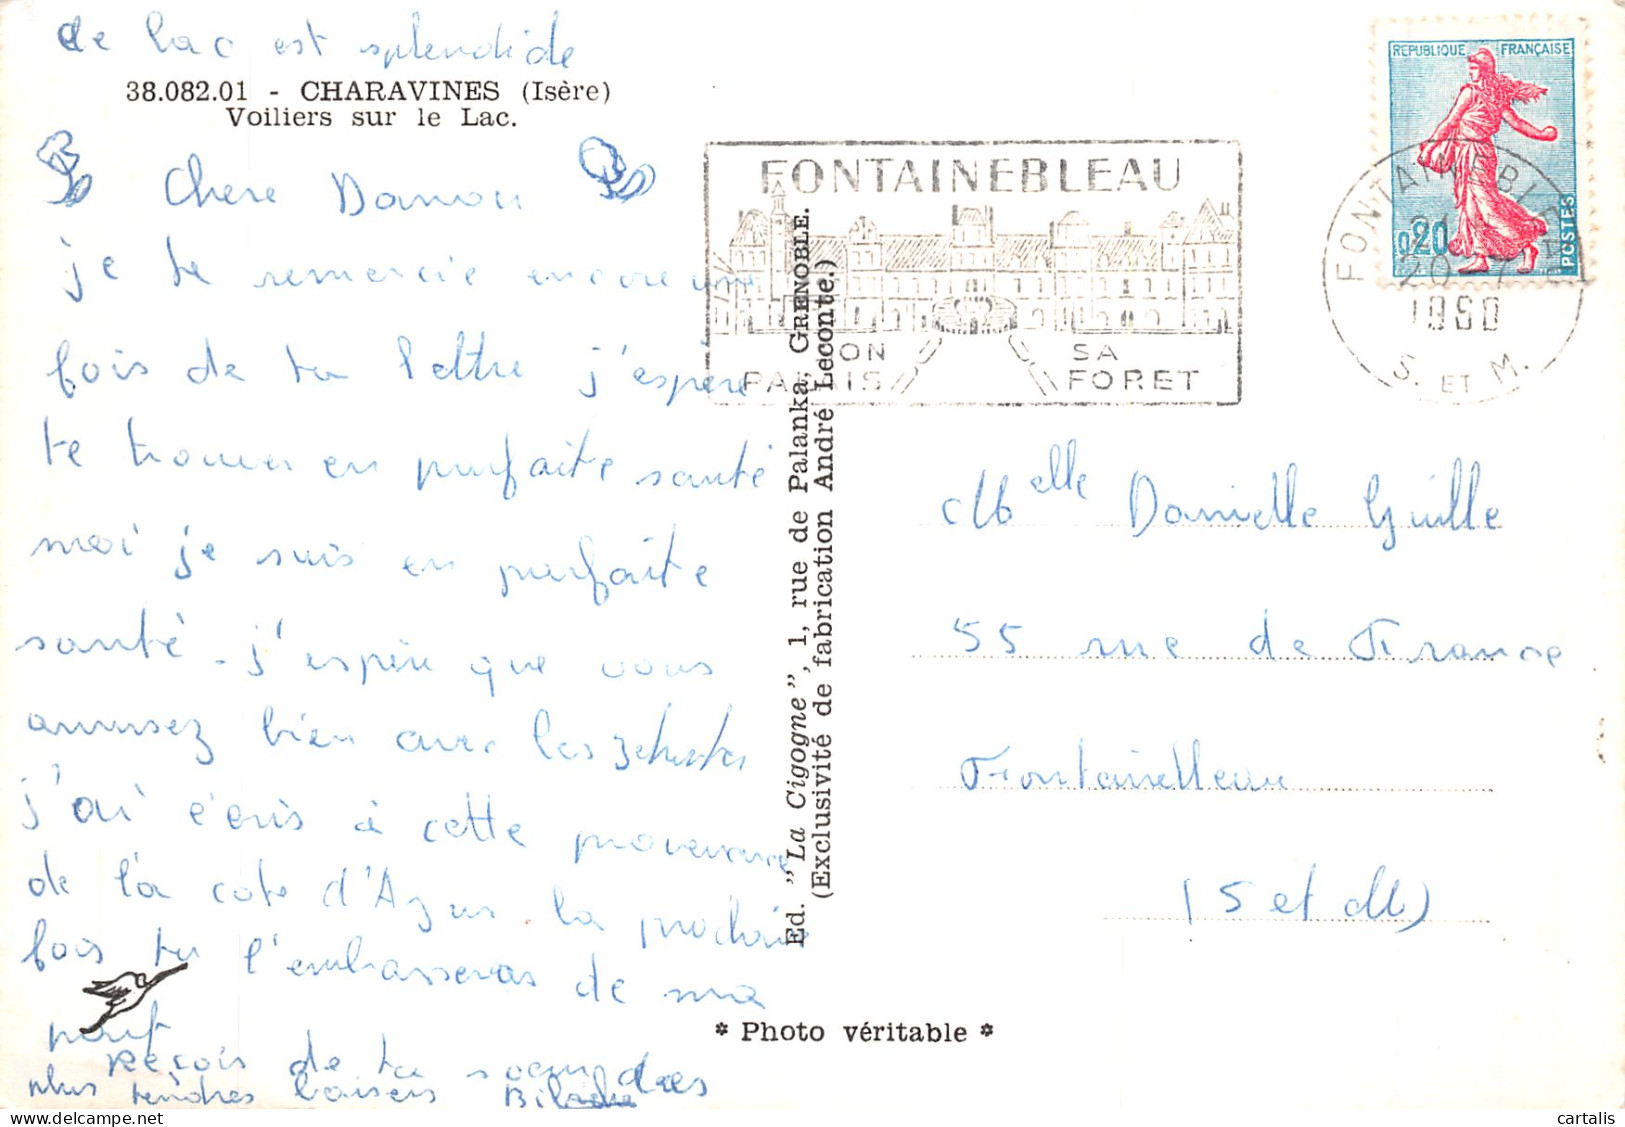 Le lac est splendide
38.082.01 - CHARAVINES (Isère)
Voiliers sur le Lac.
Chere Danou
je te remercie encore une
fois de ta lettre j'espère
te trouver en parfaite santé
moi je suis en parfaite
santé - j'espère que vous
amusez bien avec les
j'ai écris à cette provenance
de la cote d'Azur. la prochaine
fois tu l'embrasseras de ma
part
Reçois de ta soeur les
plus tendres baisers
Ed. "La Cigogne", 1, rue de Palanka, GRENOBLE.
(Exclusivité de fabrication André Leconte.)
* Photo véritable *
FONTAINEBLEAU
SON PALAIS
SA FORET
REPUBLIQUE FRANÇAISE
0,20
POSTES
FONTAINEBLEAU
1960
S. ET M.
Melle Danielle Guille
55 rue de France
Fontainebleau
(S et M)
cartalis